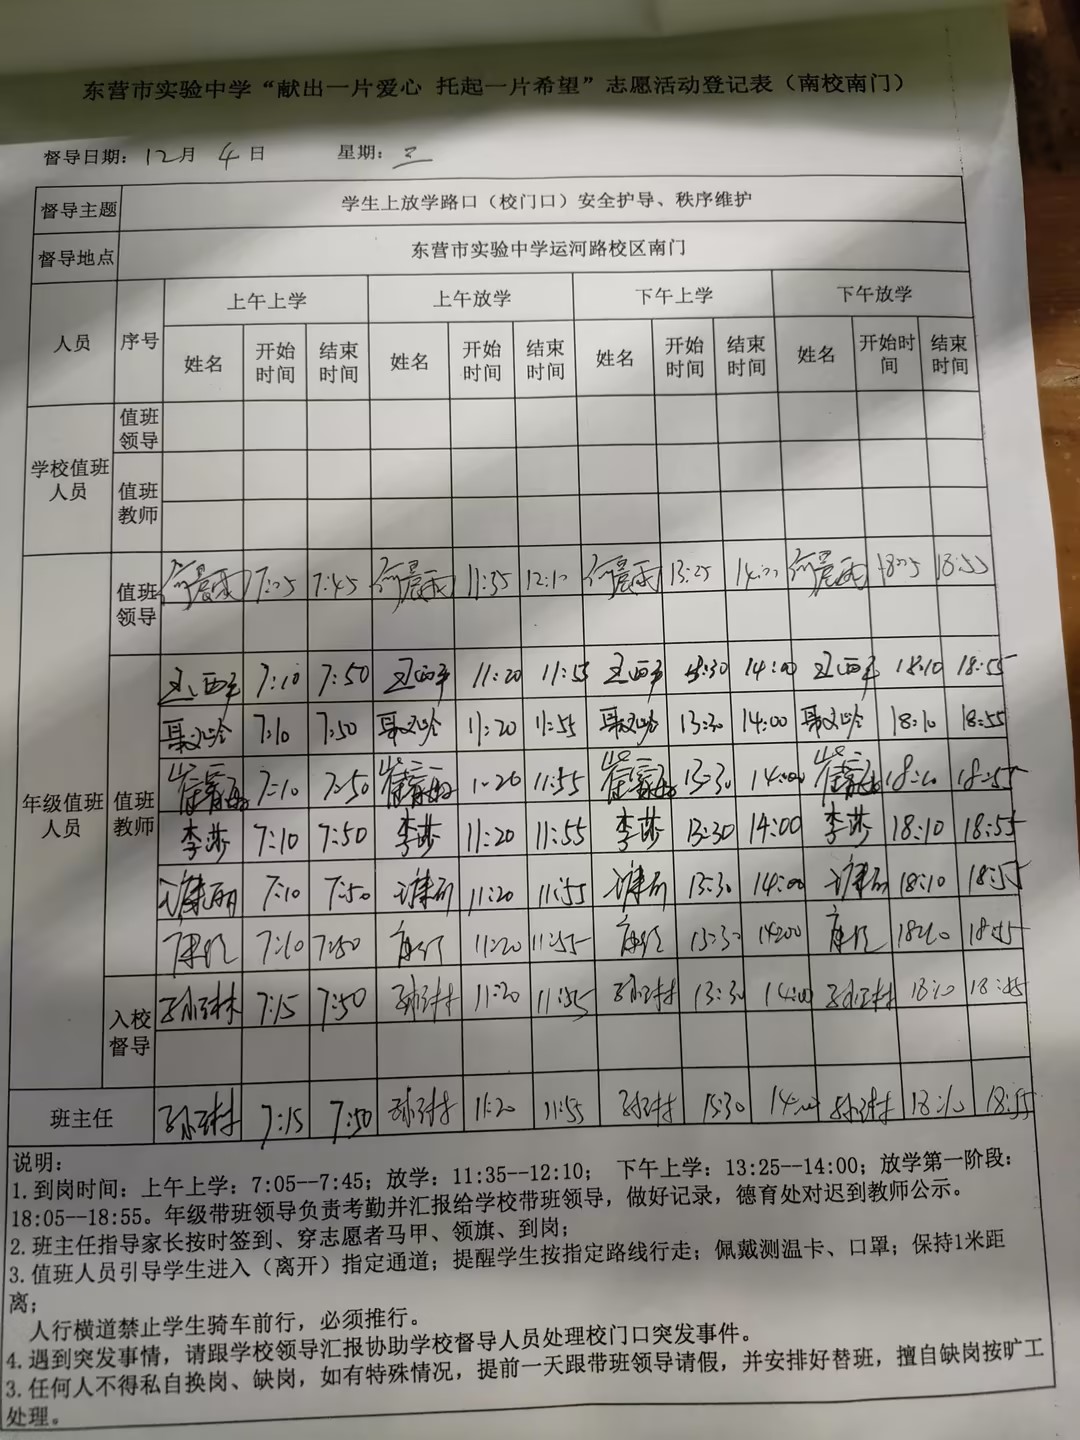 东营市实验中学“献出一片爱心 托起一片希望”志愿活动登记表（南校南门）
督导日期：12月 4日 星期：三
督导主题 学生上放学路口（校门口）安全护导、秩序维护
督导地点 东营市实验中学运河路校区南门
人员 序号 上午上学 上午放学 下午上学 下午放学
姓名 开始时间 结束时间 姓名 开始时间 结束时间 姓名 开始时间 结束时间 姓名 开始时间 结束时间
学校值班人员 值班领导
值班教师
年级值班人员 值班领导 7:05 7:45 11:35 12:10 13:25 14:00 18:05 18:55
值班教师
7:10 7:50 11:20 11:55 13:30 14:00 18:10 18:55
7:10 7:50 11:20 11:55 13:30 14:00 18:10 18:55
7:10 7:50 11:55 13:30 14:00 18:10 18:55
李莎 7:10 7:50 李莎 11:20 11:55 李莎 13:30 14:00 李莎 18:10 18:55
7:10 7:50 11:20 11:55 13:30 14:00 18:10 18:55
7:10 7:50 11:20 11:55 13:30 1400 18:10
入校督导 7:15 7:50 11:20 11:55 13:30 14:00 18:10
班主任 7:15 7:50 11:20 11:55 14:00 18:10 18:55
说明：
1.到岗时间：上午上学：7:05--7:45；放学：11:35--12:10； 下午上学：13:25--14:00；放学第一阶段：
18:05--18:55。年级带班领导负责考勤并汇报给学校带班领导，做好记录，德育处对迟到教师公示。
2.班主任指导家长按时签到、穿志愿者马甲、领旗、到岗；
3.值班人员引导学生进入（离开）指定通道；提醒学生按指定路线行走；佩戴测温卡、口罩；保持1米距
离；
人行横道禁止学生骑车前行，必须推行。
4.遇到突发事情，请跟学校领导汇报协助学校督导人员处理校门口突发事件。
3.任何人不得私自换岗、缺岗，如有特殊情况，提前一天跟带班领导请假，并安排好替班，擅自缺岗按旷工
处理。